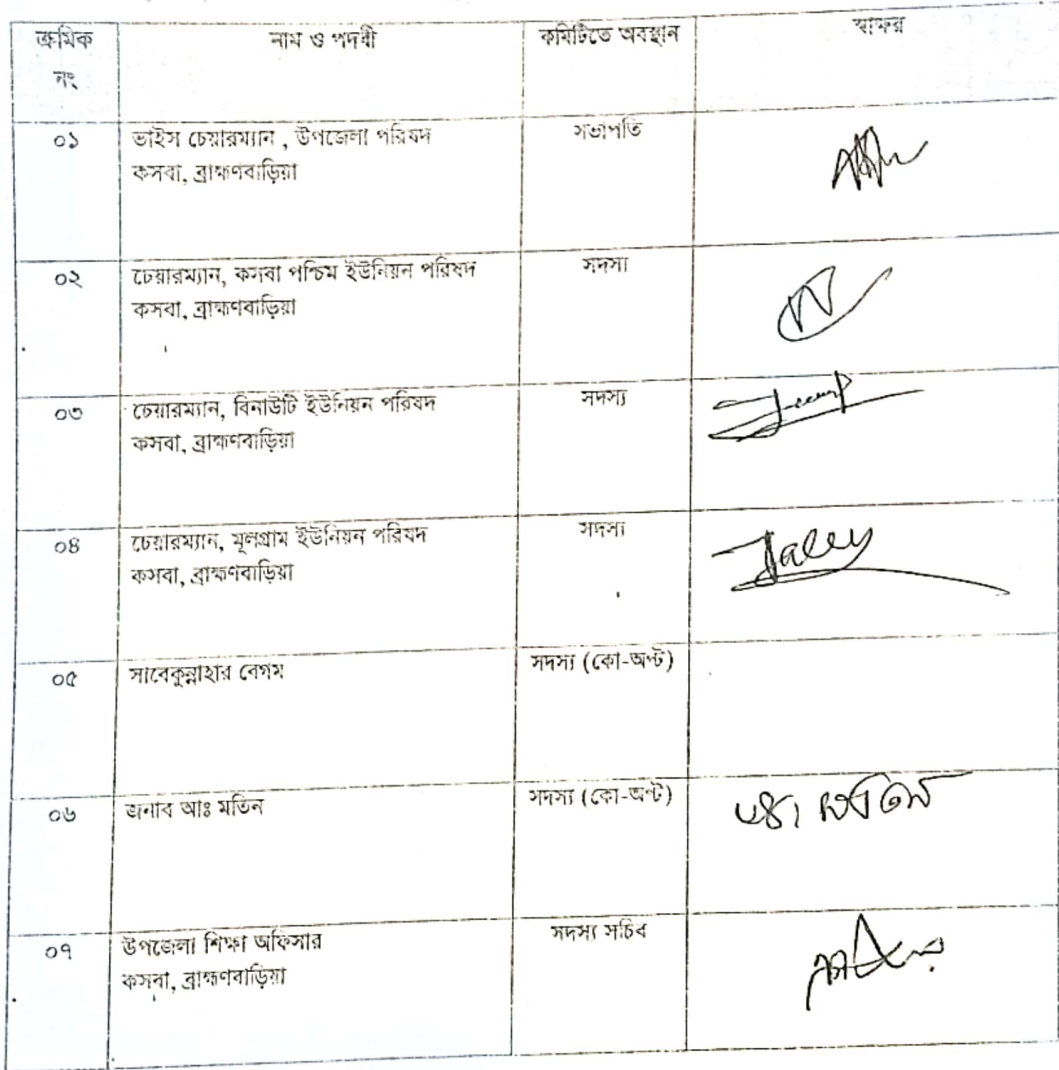 ক্রমিক নং
নাম ও পদবী
কমিটিতে অবস্থান
স্বাক্ষর
০১
ভাইস চেয়ারম্যান , উপজেলা পরিষদ
কসবা, ব্রাহ্মণবাড়িয়া
সভাপতি
০২
চেয়ারম্যান, কসবা পশ্চিম ইউনিয়ন পরিষদ
কসবা, ব্রাহ্মণবাড়িয়া
সদস্য
০৩
চেয়ারম্যান, বিনাউটি ইউনিয়ন পরিষদ
কসবা, ব্রাহ্মণবাড়িয়া
সদস্য
০৪
চেয়ারম্যান, মূলগ্রাম ইউনিয়ন পরিষদ
কসবা, ব্রাহ্মণবাড়িয়া
সদস্য
০৫
সাবেকুন্নাহার বেগম
সদস্য (কো-অপ্ট)
০৬
জনাব আঃ মতিন
সদস্য (কো-অপ্ট)
০৭
উপজেলা শিক্ষা অফিসার
কসবা, ব্রাহ্মণবাড়িয়া
সদস্য সচিব